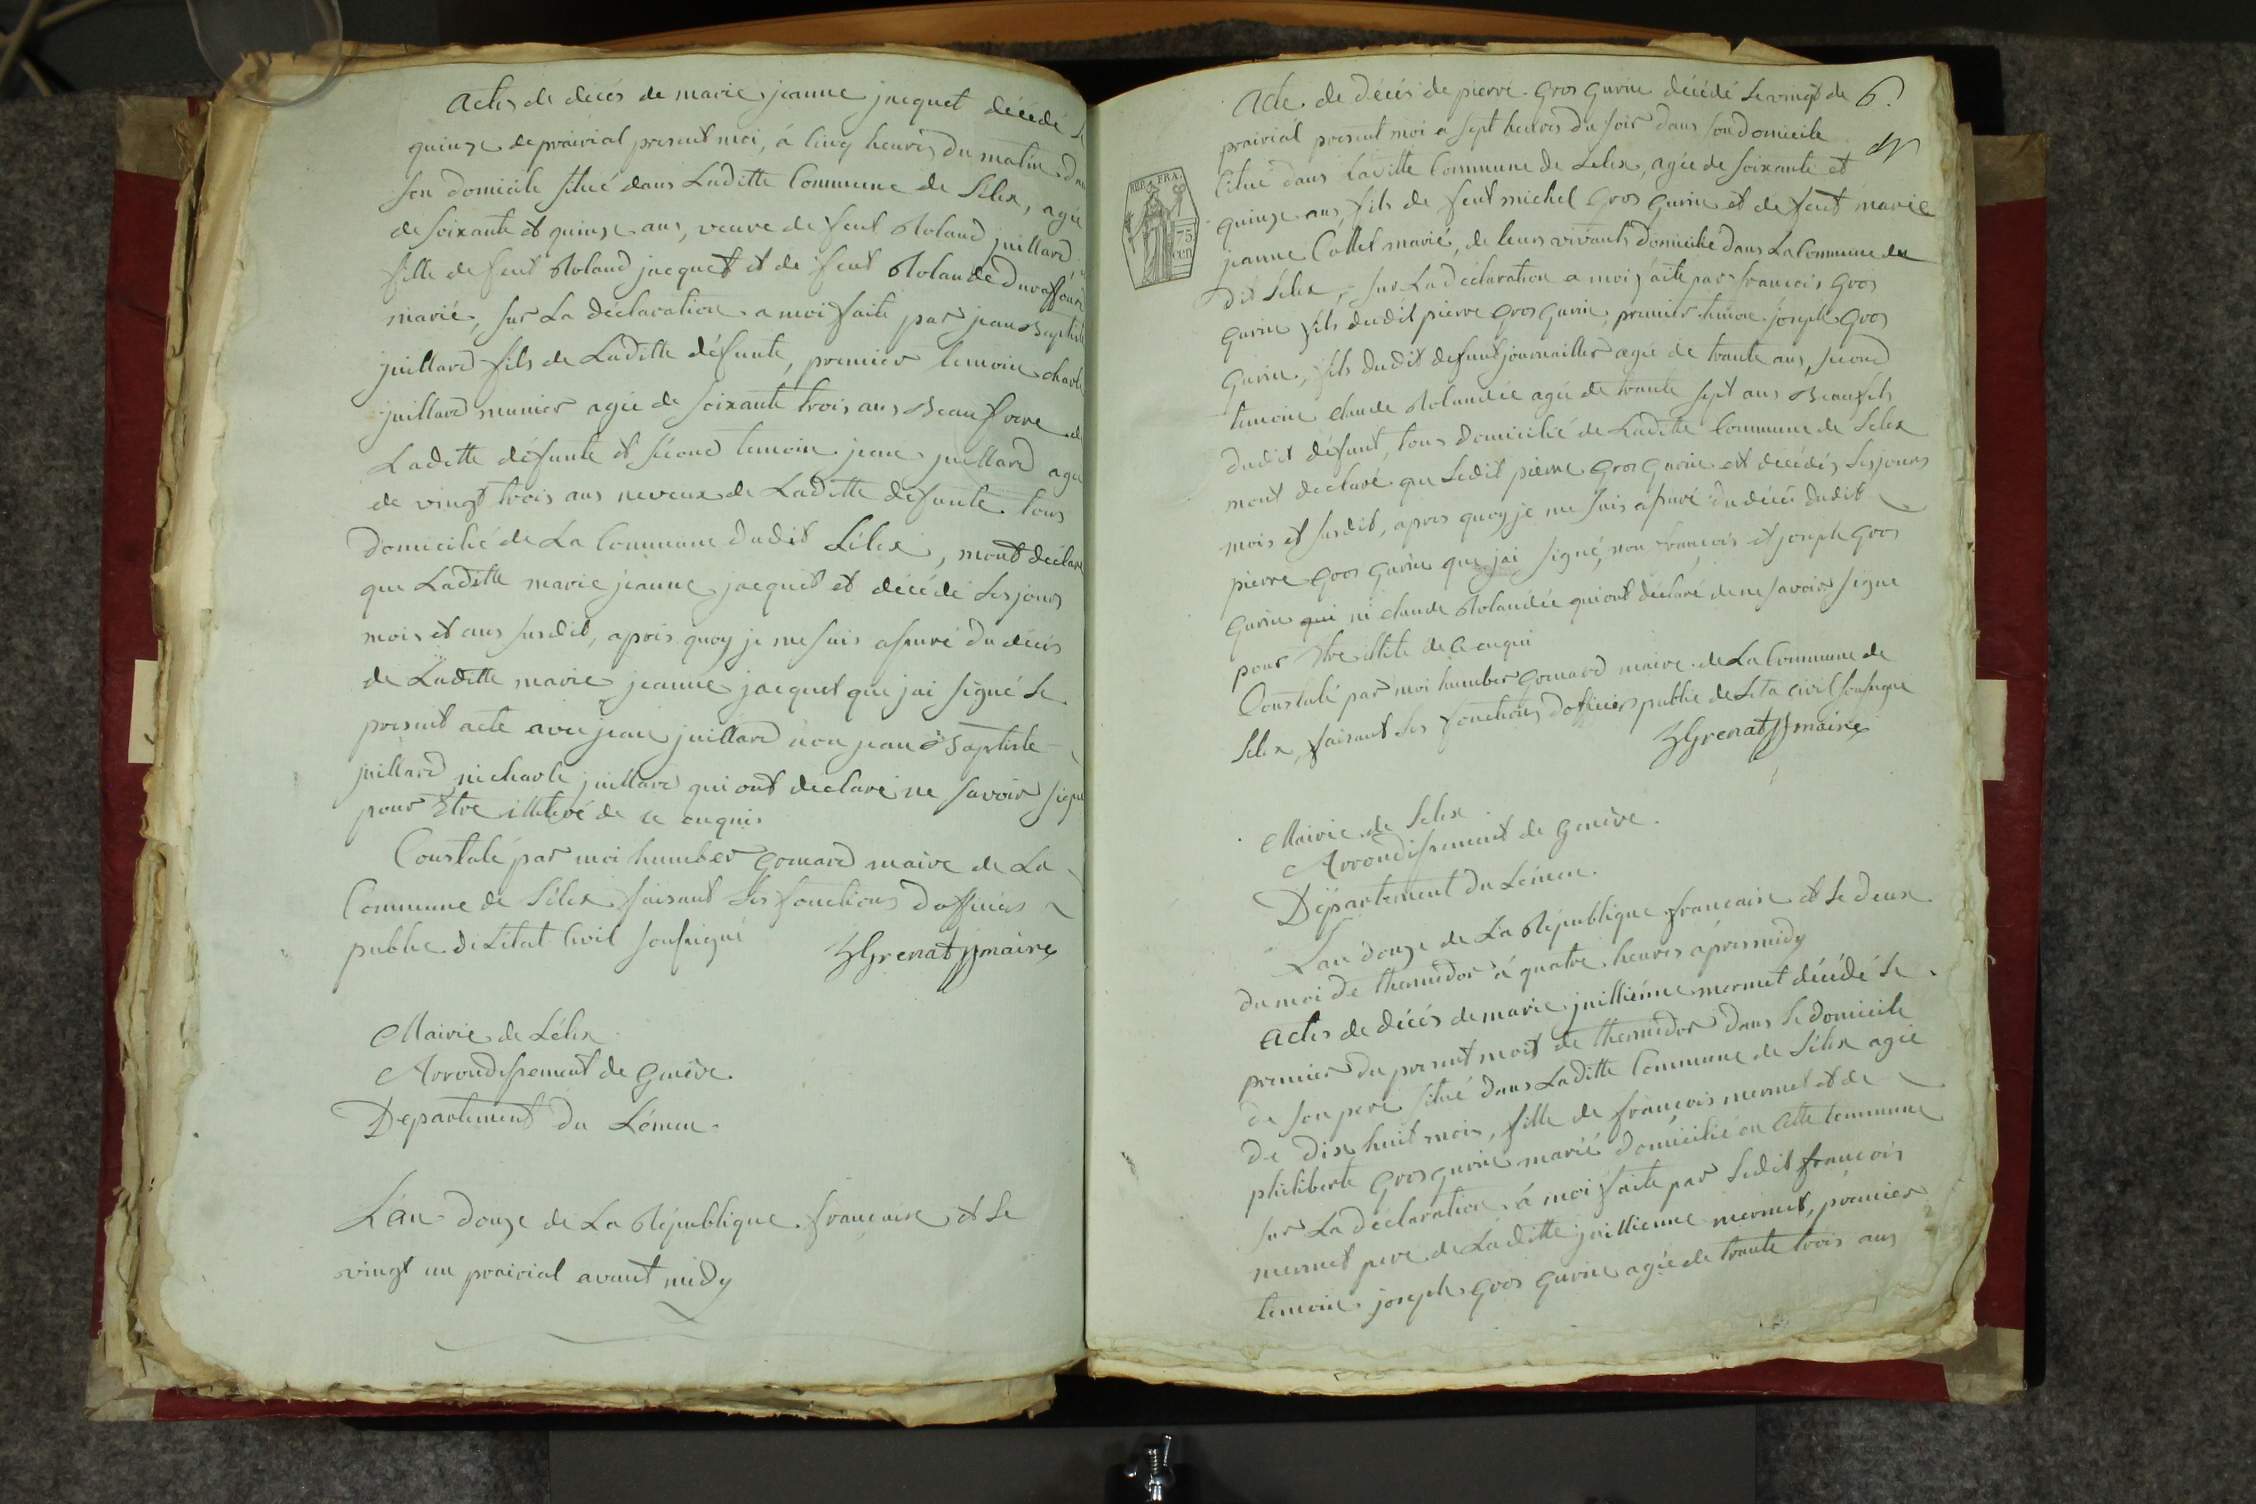 Actes de décés de marie jeanne jacquet décédé le
quinze de prairial present moi, á cinq heures du matin dans
son domicile situé dans Laditte Commune de Lélex, agée
de soixante et quinze ans, veuve de feut Roland juillard,
fille de feut Roland jacquet et de feut Rolande duraffour
marié, sur La déclaration a moi faite par jean Baptiste
juillard fils de Laditte défunte, premier temoin charle
juillard meunier agée de soixante trois ans Beau frere de
Laditte défunte et sécond temoin jean juillard agée
de vingt trois ans neveux de Laditte défunte tous
domicilié de La Commune dudit Lélex, mont déclaré
que Laditte marie jeanne jacquet et décédé Les jours
mois et ans susdit, aprés quoy je me suis assuré du décés
de Laditte marie jeanne jacquet que jai signé Le
present acte avec jean juillard non jean Baptiste
juillard ni charle juillard qui ont déclaré ne savoir signé
pour Etre illiteré de ce enquis
Constaté par moi humber gomard maire de La
Commune de Lélex faisant Les fonctions dofficiers
public de Létat Civil soussigné
HGrenat maire
Mairie de Lélex
Arrondissement de Genève
Département du Léman
L'an douze de La République française et Le
vingt un prairial avant midy
Acte de décés de pierre Gros Gurin décédé Le vingt de
6.
prairial present moi a sept heures du soir dans son domicile
situé dans laditte Commune de Lelex, agée de soixante et
quinze ans, fils de feut michel Gros Gurin et de feut marie
REP. FRA.
75
cen
jeanne Collet marié, de leurs vivants domicilié dans La Commune du
dit Lélex, sur La déclaration a moi faite par françois Gros
Gurin fils dudit pierre Gros Gurin, premier temoin joseph Gros
Gurin, fils dudit defunt journaillier agée de trante ans, second
temoin claude Rolandée agé de trante sept ans Beaufils
dudit défunt, tous domicilié de Laditte Commune de Lelex
mont declaré que Ledit pierre Gros Gurin est décédés, Les jours
mois et susdit, apres quoy je me suis assuré du décés dudit
pierre Gros Gurin que jai signé, non françois et joseph Gros
Gurin qui ni claude Rolandée qui ont déclaré de ne savoir signe
pour Etre illite de ce enqui
Constaté par moi humber gomard maire de La Commune de
Lelex, faisant Les fonctions dofficiers public de Léta civil soussigne
HGrenat maire
Mairie de Lelex
Arrondissement de Genève.
Département du Léman.
L'an douze de La République française et Le deux
du moi de thermidor á quatre heures aprés midy
Actes de décés de marie juillienne mermet décédé Le
premier du present mois de thermidor dans Le domicile
de son pere situé dans Laditte Commune de Lélex agée
de dix huit mois, fille de françois mermet et de
philiberte Gros gurin marié domicilié en cette Commune
sur La déclaration á moi faite par Ledit françois
mermet pere de Laditte juillienne mermet, premier
temoin joseph Gros Gurin agée de trante trois ans